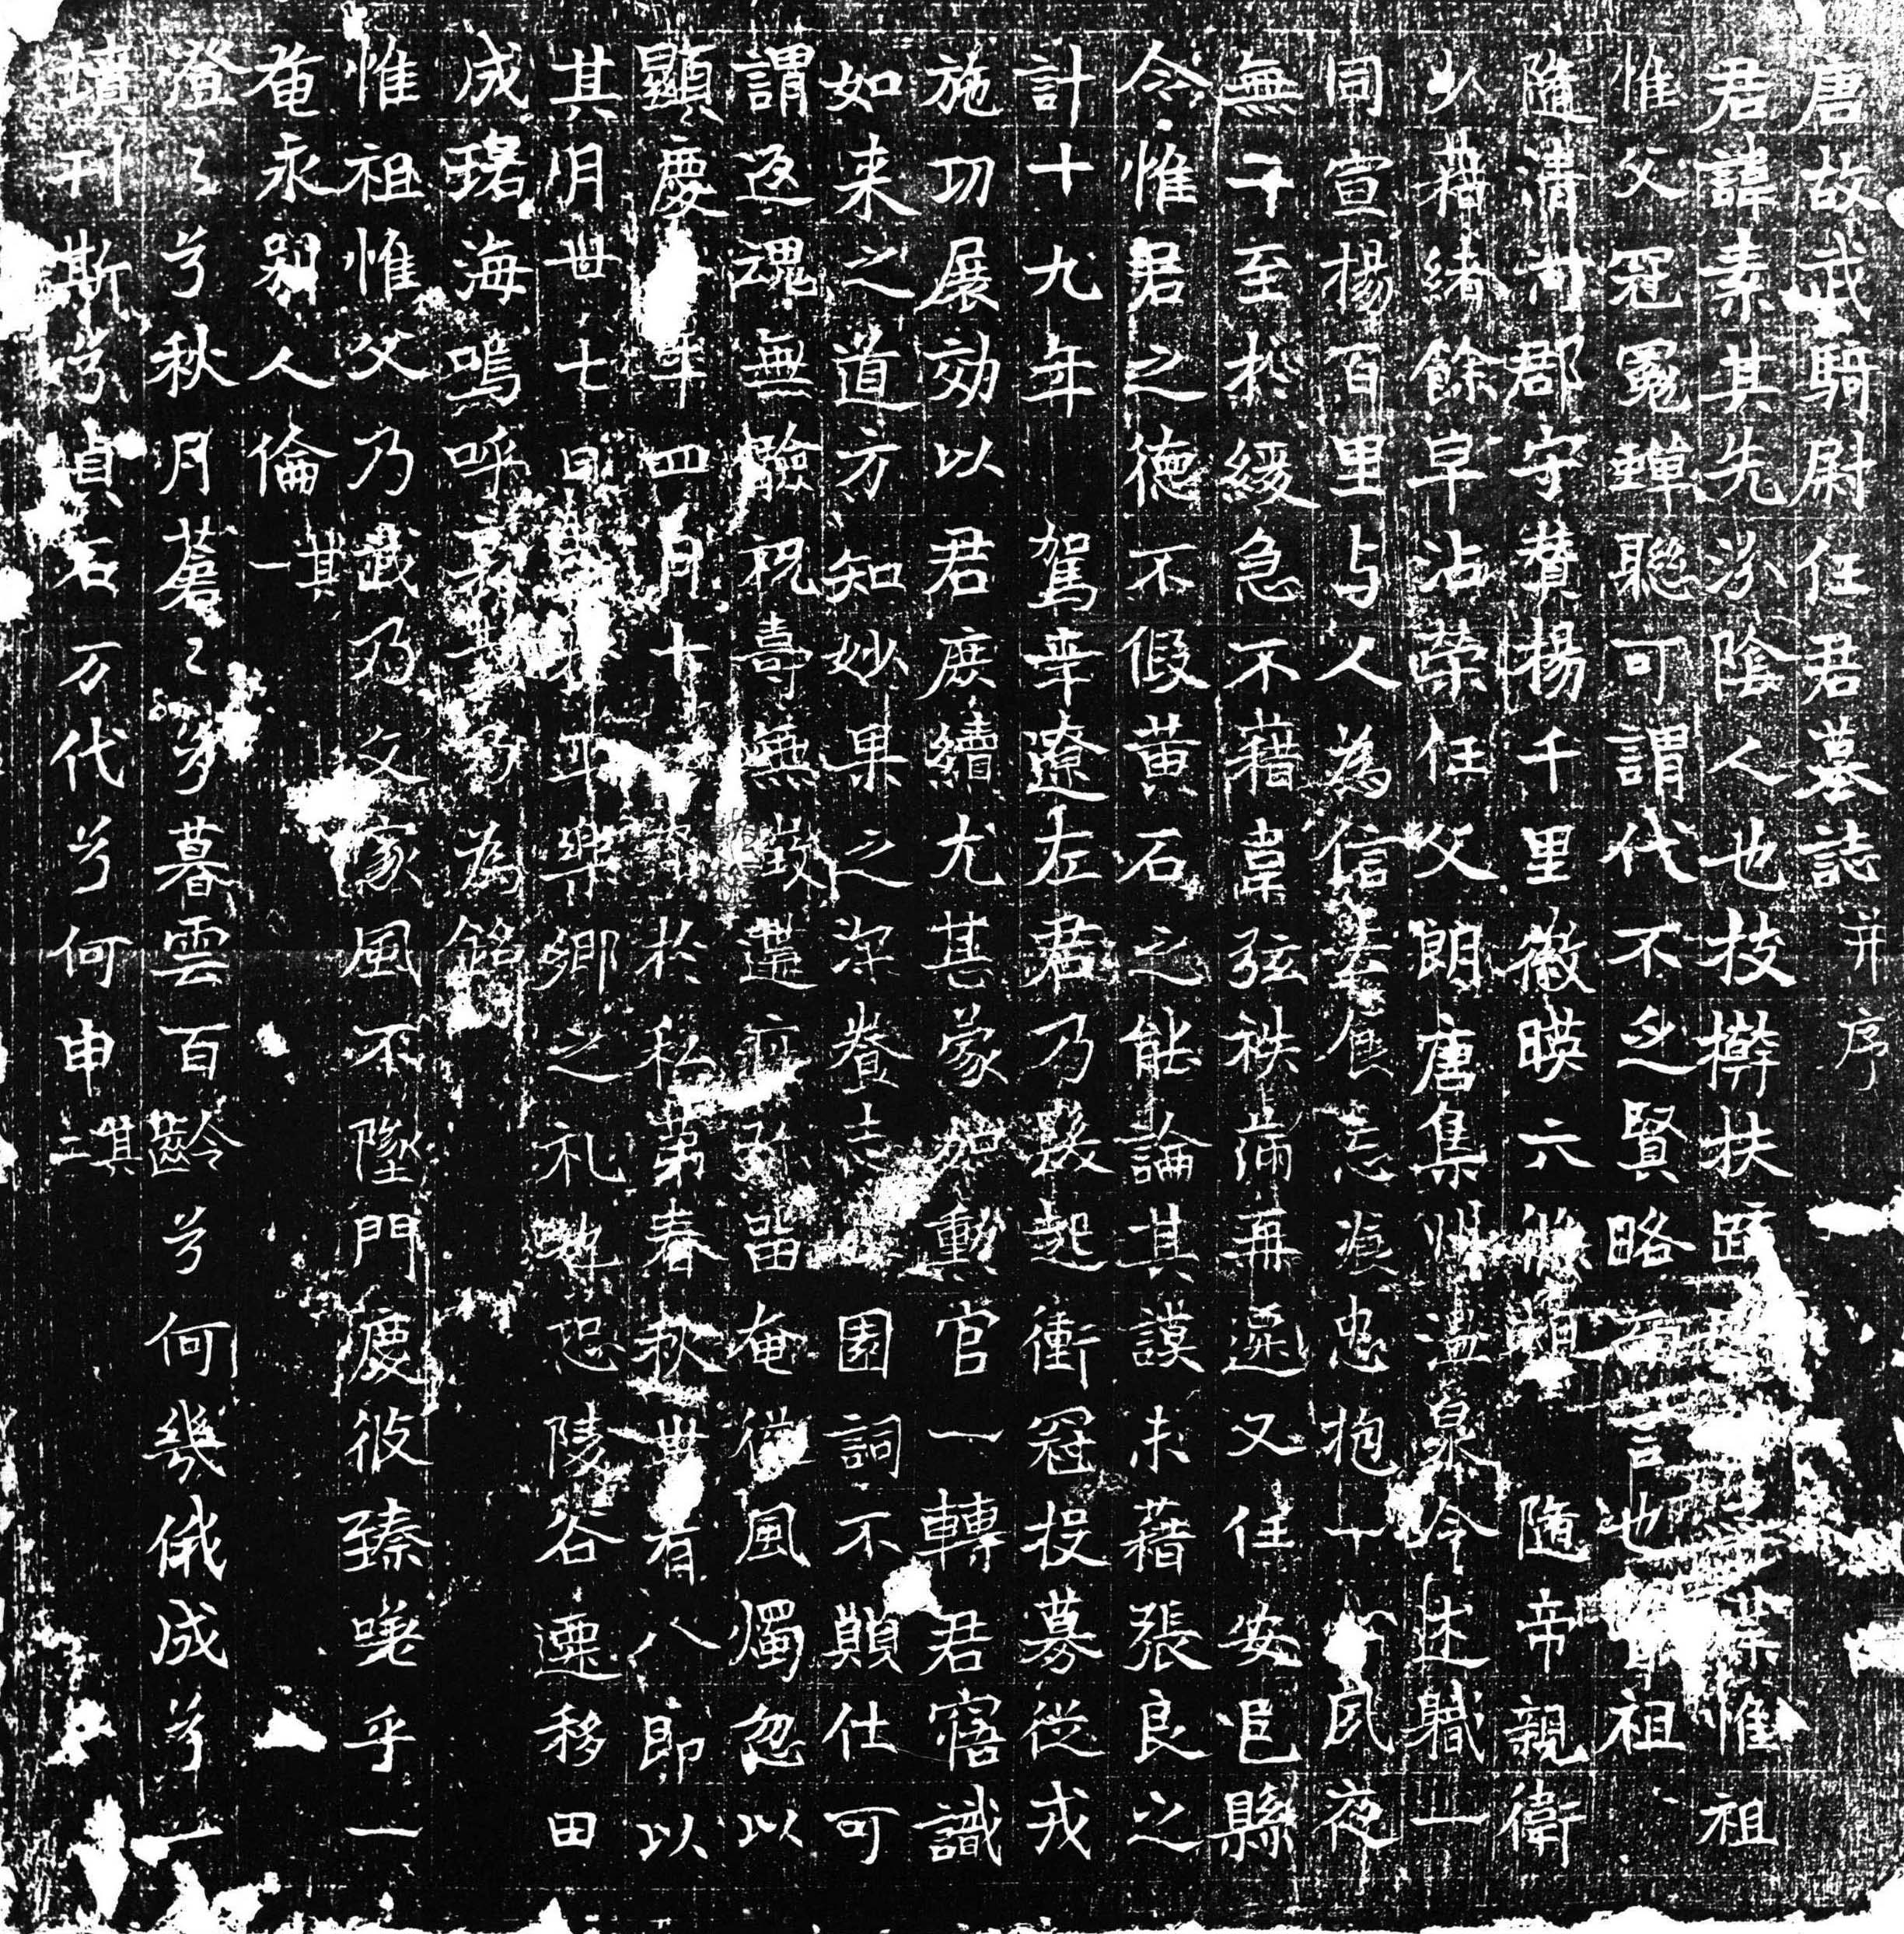 唐故武騎尉任君墓誌并序
君諱素其先汾陰人也枝櫱扶踈葉惟祖
惟父冠冕蟬聮可謂代不乏賢略而言也祖
隨清河郡守賛楊千里徽暎六條隨帝親衛
少藉緒餘早沾榮任父朗唐集州溫泉令述職一
同宣揚百里与人為信忘忠抱一夙夜
無虧至於緩急不藉韋弦秩滿再遷又任安邑縣
令惟君之德不假黃石之能論其謨未藉張良之
計十九年駕幸遼左君乃裝起衝冠投募從戎
施功展効以君庻績尤甚蒙加勲官一轉君寤識
如来之道方知妙果之深眷志丘園詞不願仕可
謂返魂無驗祝壽無徵遘疾弥留奄從風燭忽以
顯慶年四月十於私第春秋卌有八即以
其月廿七日平樂鄉之礼也恐陵谷遷移田
成碧海嗚呼哀哉乃為銘
惟祖惟父乃武乃文家風不墜門慶彼臻嗟乎一
奄永別人倫其一
澄〻兮秋月蒼〻兮暮雲百齡兮何幾俄成兮一
墳刊斯兮貞石万代兮何申其二